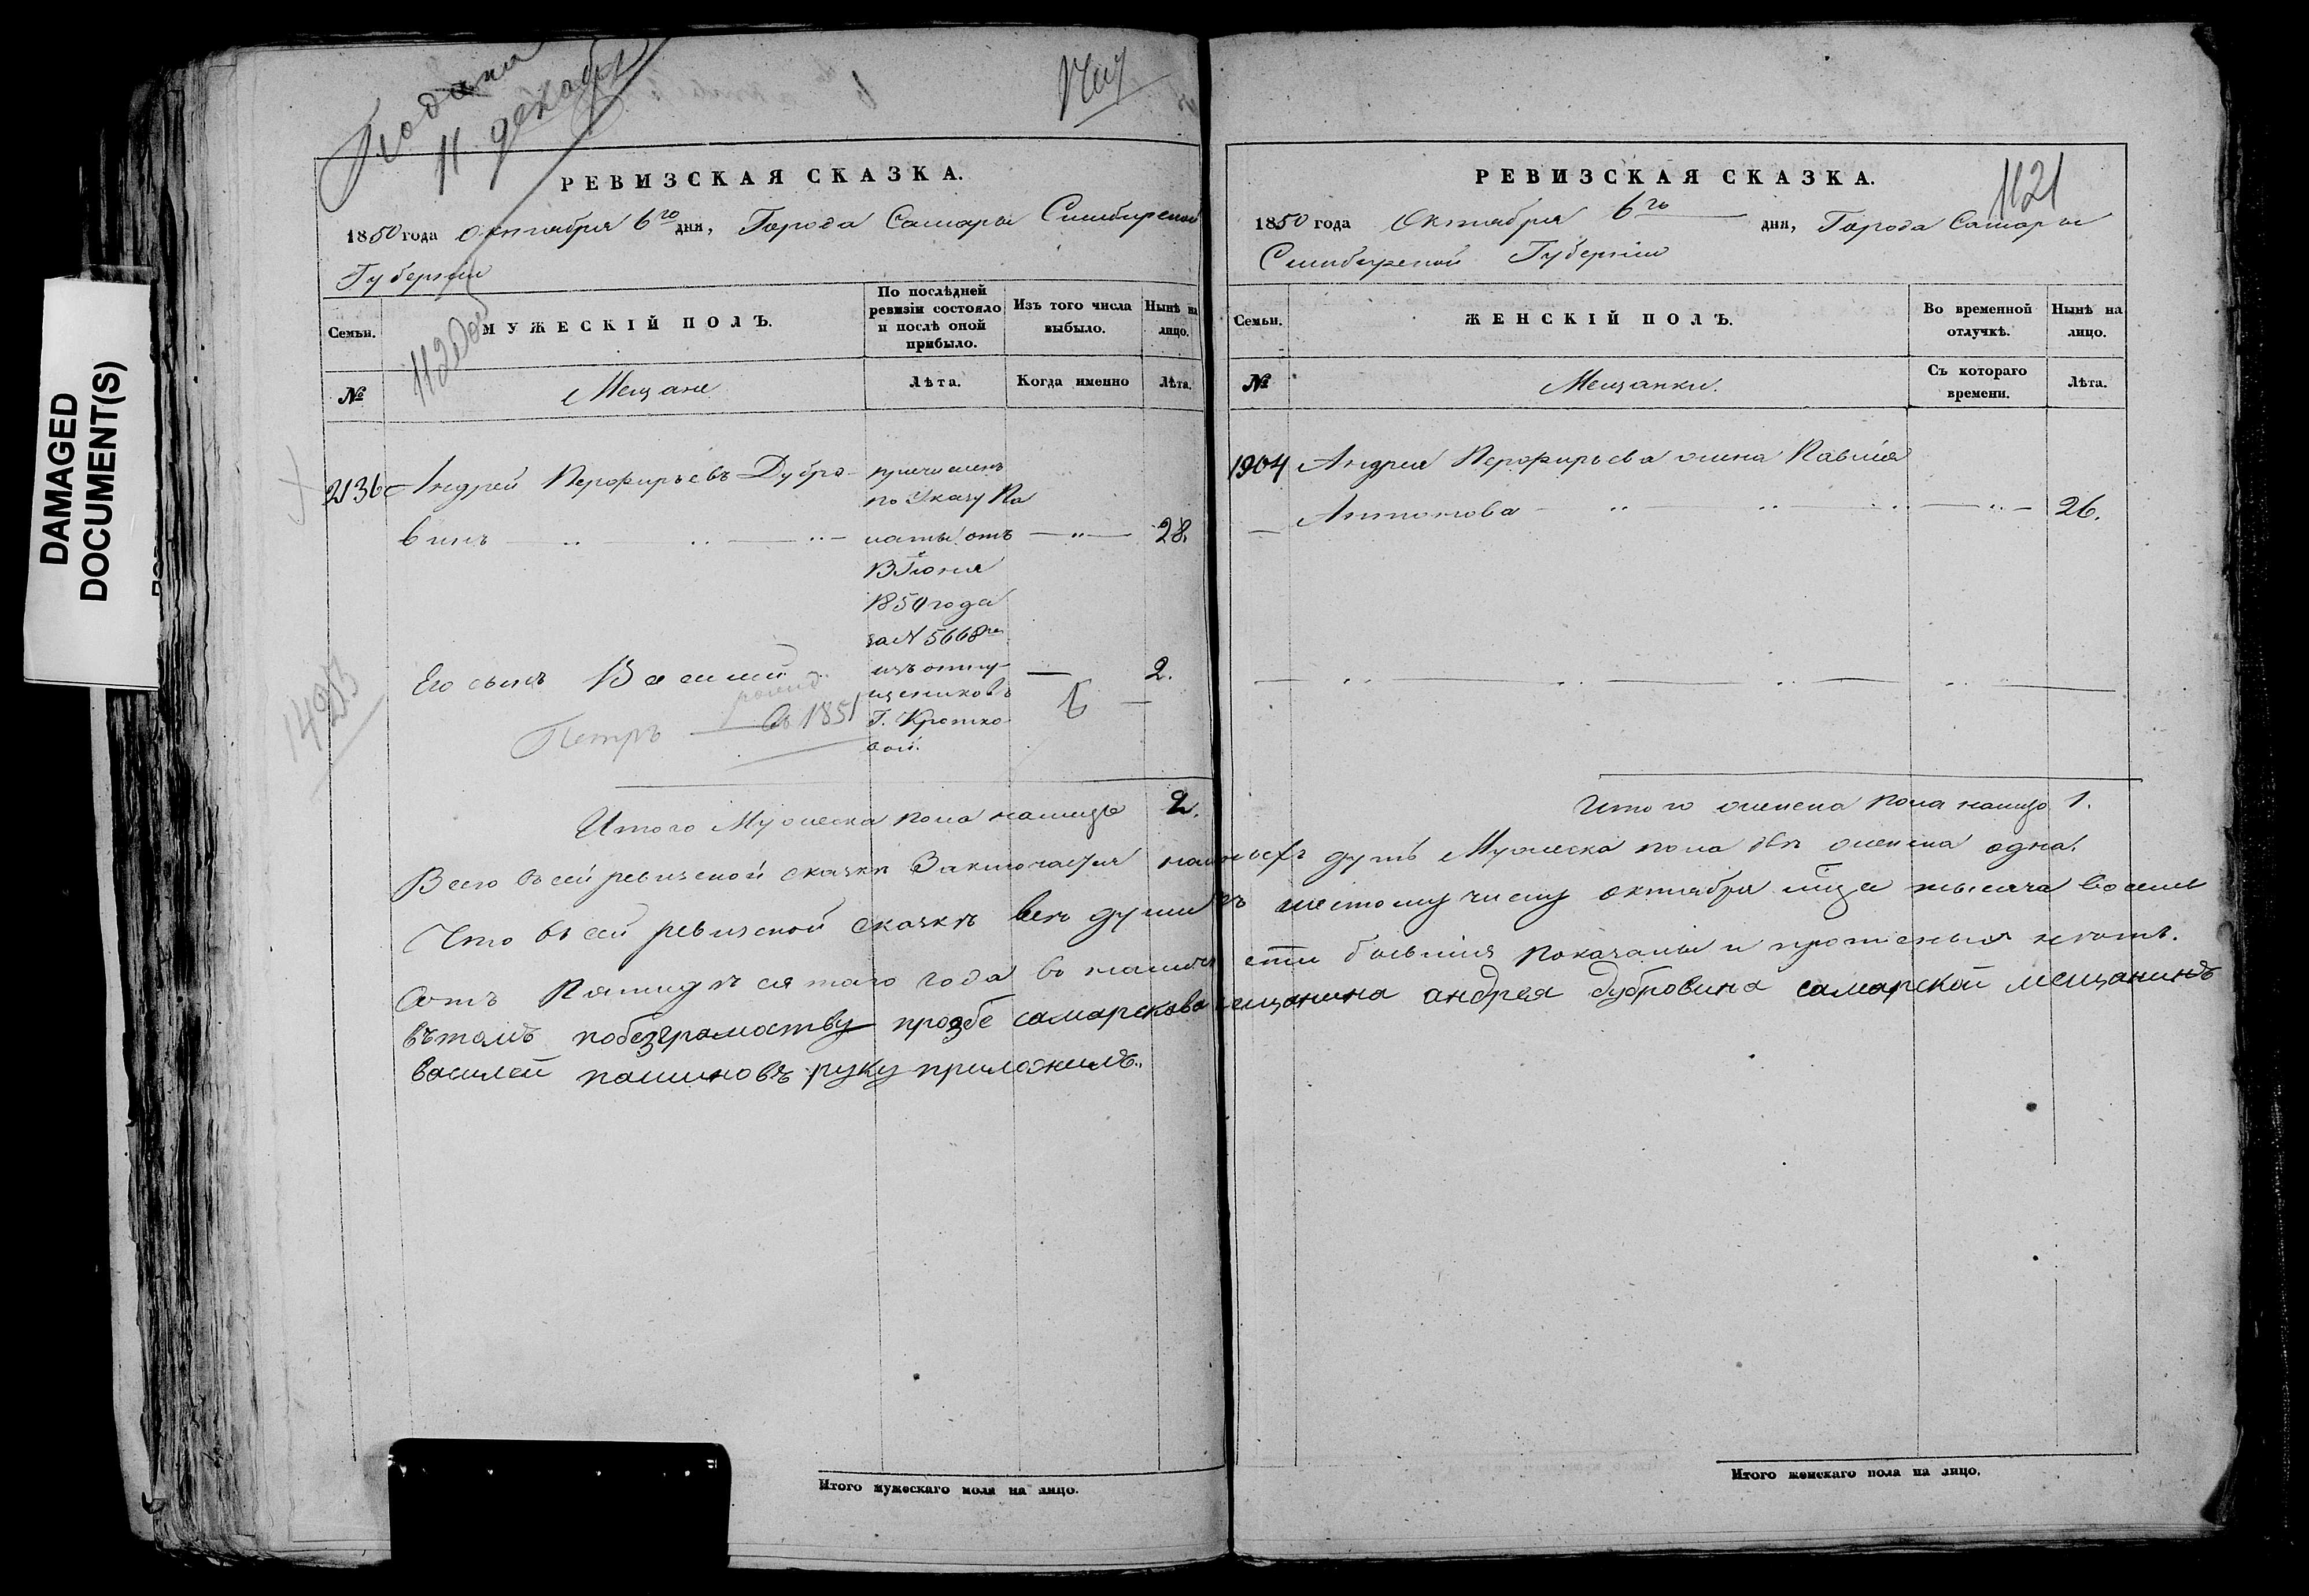 DAMAGED
DOCUMENT(S)
Подана
11 декабря
РЕВИЗСКАЯ СКАЗКА.
1850 года октября 6го дня, Города Самары Симбирской
Губернии
Семьи.
МУЖЕСКІЙ ПОЛЪ.
По послѣдней
ревизіи состояло
и послѣ оной
прибыло.
Изъ того числа
выбыло.
Нынѣ на
лицо.
№
Мещане
Лѣта.
Когда именно
Лѣта.
2136 Андрей Перфирьевъ Дубро-
винъ
28.
причисленъ
по Указу Па
латы отъ
Іюня
1850 года
за N 5668
изъ отпу-
щениковъ
Г. Кротко-
вой.
Его сынъ Василий
2.
Петръ въ 1851
Итого Мужеска пола налице 2.
РЕВИЗСКАЯ СКАЗКА.
1121
1850 года Октября 6го дня, Города Самары
Симбирской Губернии
Семьи.
ЖЕНСКІЙ ПОЛЪ.
Во временной
отлучкѣ.
Нынѣ на
лицо.
№
Мещанки.
Съ котораго
времени.
Лѣта.
1904 Андрея Перфирьева жена Павліа
Антонова 26.
Итого женска пола налицо 1.
Всего в сей ревизской сказкѣ Заключается наличныхъ душъ Мужеска пола двѣ женска одна.
Что в сей ревизской сказкѣ всѣ души къ шестому числу октября мца тысяча восемь
Сотъ Пятидесятаго года в наличности бывшия показаны и прописныхъ нѣтъ.
въ томъ побезграмоству прозбе самарскова мещанина андрея дубровина самарской мещанинъ
василей пашиновъ руку приложилъ.
Итого мужескаго пола на лицо.
Итого женскаго пола на лицо.